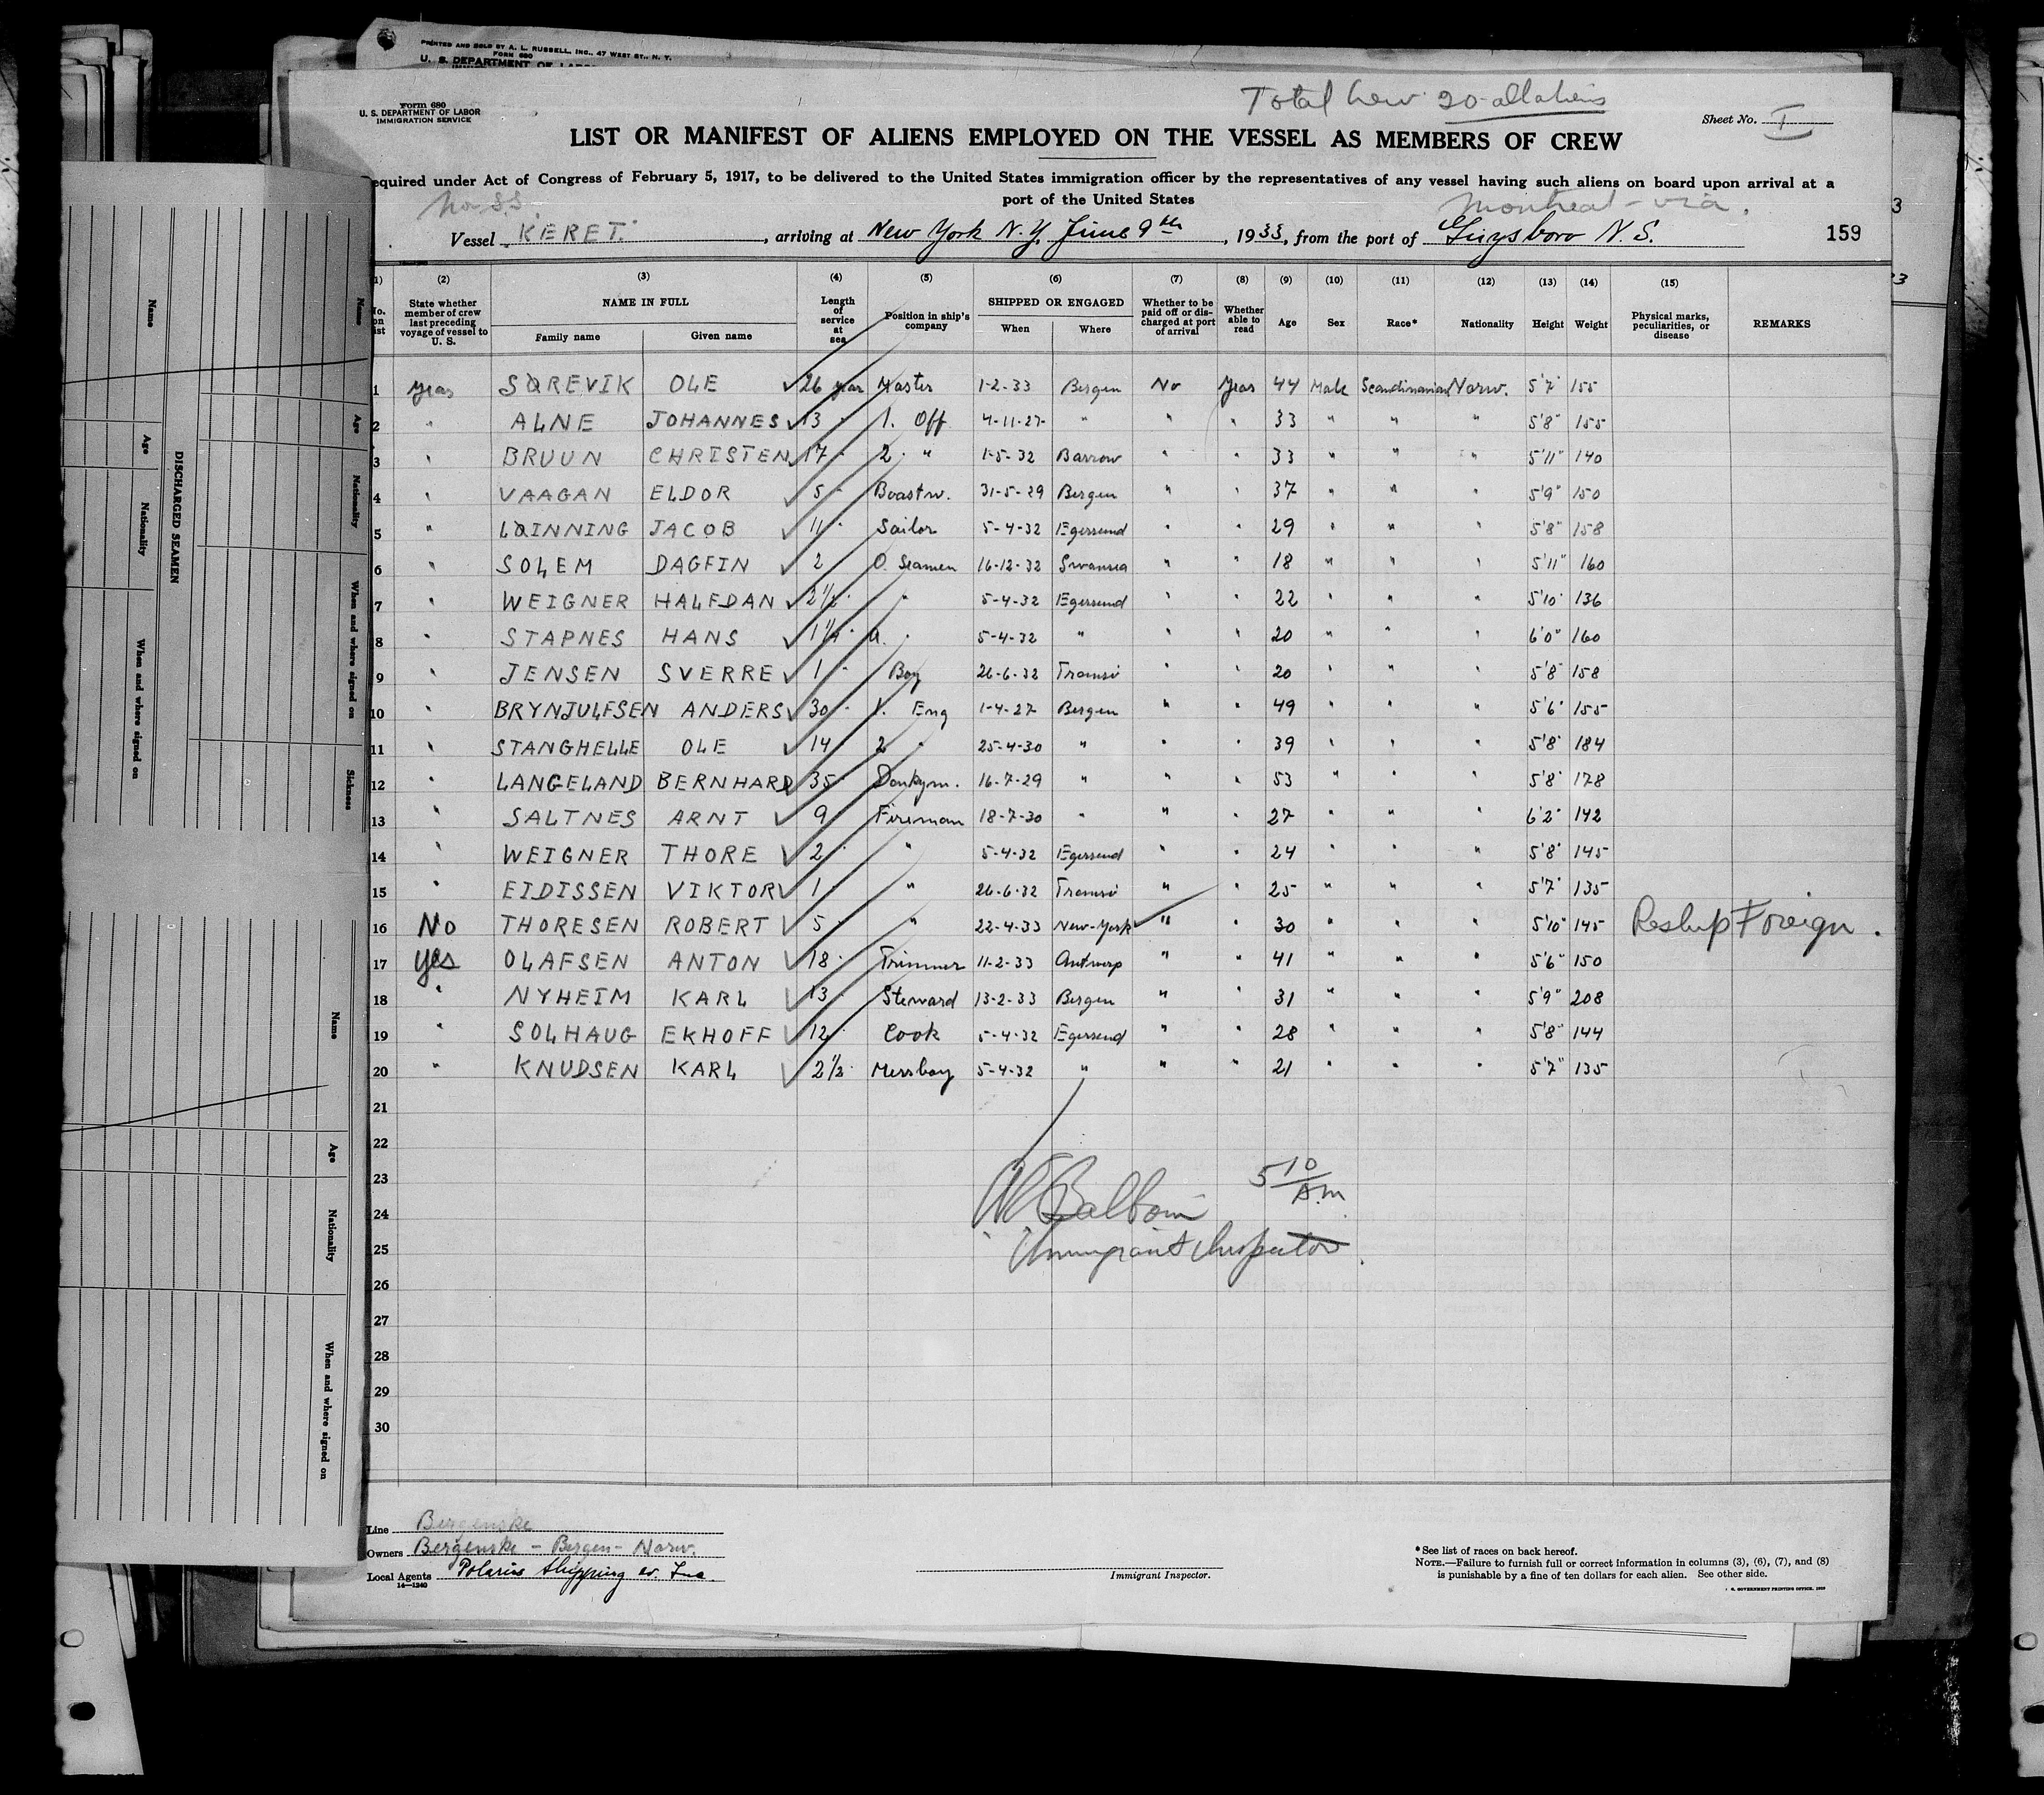 PRINTED AND SOLD BY A. L. RUSSELL, INC., 47 WEST ST., N. Y.
FORM 680
U. S. DEPARTMENT OF LABOR
Form 680
U. S. DEPARTMENT OF LABOR
IMMIGRATION SERVICE
Total Crew 20 - all aliens
Sheet No. I
LIST OR MANIFEST OF ALIENS EMPLOYED ON THE VESSEL AS MEMBERS OF CREW
equired under Act of Congress of February 5, 1917, to be delivered to the United States immigration officer by the representatives of any vessel having such aliens on board upon arrival at a
port of the United States
Montreal - via
Vessel KERET. , arriving at New York N.Y. June 9th , 1933, from the port of Guysboro N.S. 159
(1) (2) (3) (4) (5) (6) (7) (8) (9) (10) (11) (12) (13) (14) (15)
No. on list State whether member of crew last preceding voyage of vessel to U. S. NAME IN FULL Family name Given name Length of service at sea Position in ship's company SHIPPED OR ENGAGED When Where Whether to be paid off or discharged at port of arrival Whether able to read Age Sex Race* Nationality Height Weight Physical marks, peculiarities, or disease REMARKS
1 Yeas SØREVIK OLE 26 year Master 1-2-33 Bergen No Yeas 44 Male Scandinavian Norw. 5'7" 155
2 " ALNE JOHANNES 13 " 1. Off 4-11-27 " " " 33 " " " 5'8" 155
3 " BRUUN CHRISTEN 17 " 2. " 1-5-32 Barrow " " 33 " " " 5'11" 140
4 " VAAGAN ELDOR 5 " Boastw. 31-5-29 Bergen " " 37 " " " 5'9" 150
5 " LØINNING JACOB 11 " Sailor 5-4-32 Egersund " " 29 " " " 5'8" 158
6 " SOLEM DAGFIN 2 O. Seamen 16-12-32 Swansea " " 18 " " " 5'11" 160
7 " WEIGNER HALFDAN 2 1/2 " " 5-4-32 Egersund " " 22 " " " 5'10" 136
8 " STAPNES HANS 1 1/4 " " 5-4-32 " " " 20 " " " 6'0" 160
9 " JENSEN SVERRE 1 " Boy 26-6-32 Tromsö " " 20 " " " 5'8" 158
10 " BRYNJULFSEN ANDERS 30 " 1. Eng 1-4-27 Bergen " " 49 " " " 5'6" 155
11 " STANGHELLE OLE 14 " 2 " 25-4-30 " " " 39 " " " 5'8" 184
12 " LANGELAND BERNHARD 35 " Donkym. 16-7-29 " " " 53 " " " 5'8" 178
13 " SALTNES ARNT 9 " Fireman 18-7-30 " " " 27 " " " 6'2" 142
14 " WEIGNER THORE 2 " " 5-4-32 Egersund " " 24 " " " 5'8" 145
15 " EIDISSEN VIKTOR 1 " " 26-6-32 Tromsö " " 25 " " " 5'7" 135
16 No THORESEN ROBERT 5 " " 22-4-33 New-York " " 30 " " " 5'10" 145 Reship Foreign.
17 Yes OLAFSEN ANTON 18 " Trimmer 11-2-33 Antwerp " " 41 " " " 5'6" 150
18 " NYHEIM KARL 13 " Steward 13-2-33 Bergen " " 31 " " " 5'9" 208
19 " SOLHAUG EKHOFF 12 " Cook 5-4-32 Egersund " " 28 " " " 5'8" 144
20 " KNUDSEN KARL 2 1/2 " Messboy 5-4-32 " " " 21 " " " 5'7" 135
21
22
23
24
25
26
27
28
29
30
5 10 A.m
Immigrant Inspector
Line Bergenske
Owners Bergenske - Bergen - Norw.
Local Agents Polarius Shipping Co. Inc.
14—1240
Immigrant Inspector.
* See list of races on back hereof.
NOTE.—Failure to furnish full or correct information in columns (3), (6), (7), and (8)
is punishable by a fine of ten dollars for each alien. See other side.
DISCHARGED SEAMEN
Name Age Nationality When and where signed on Sickness
Name Age Nationality When and where signed on
Name Age Nationality When and where signed on